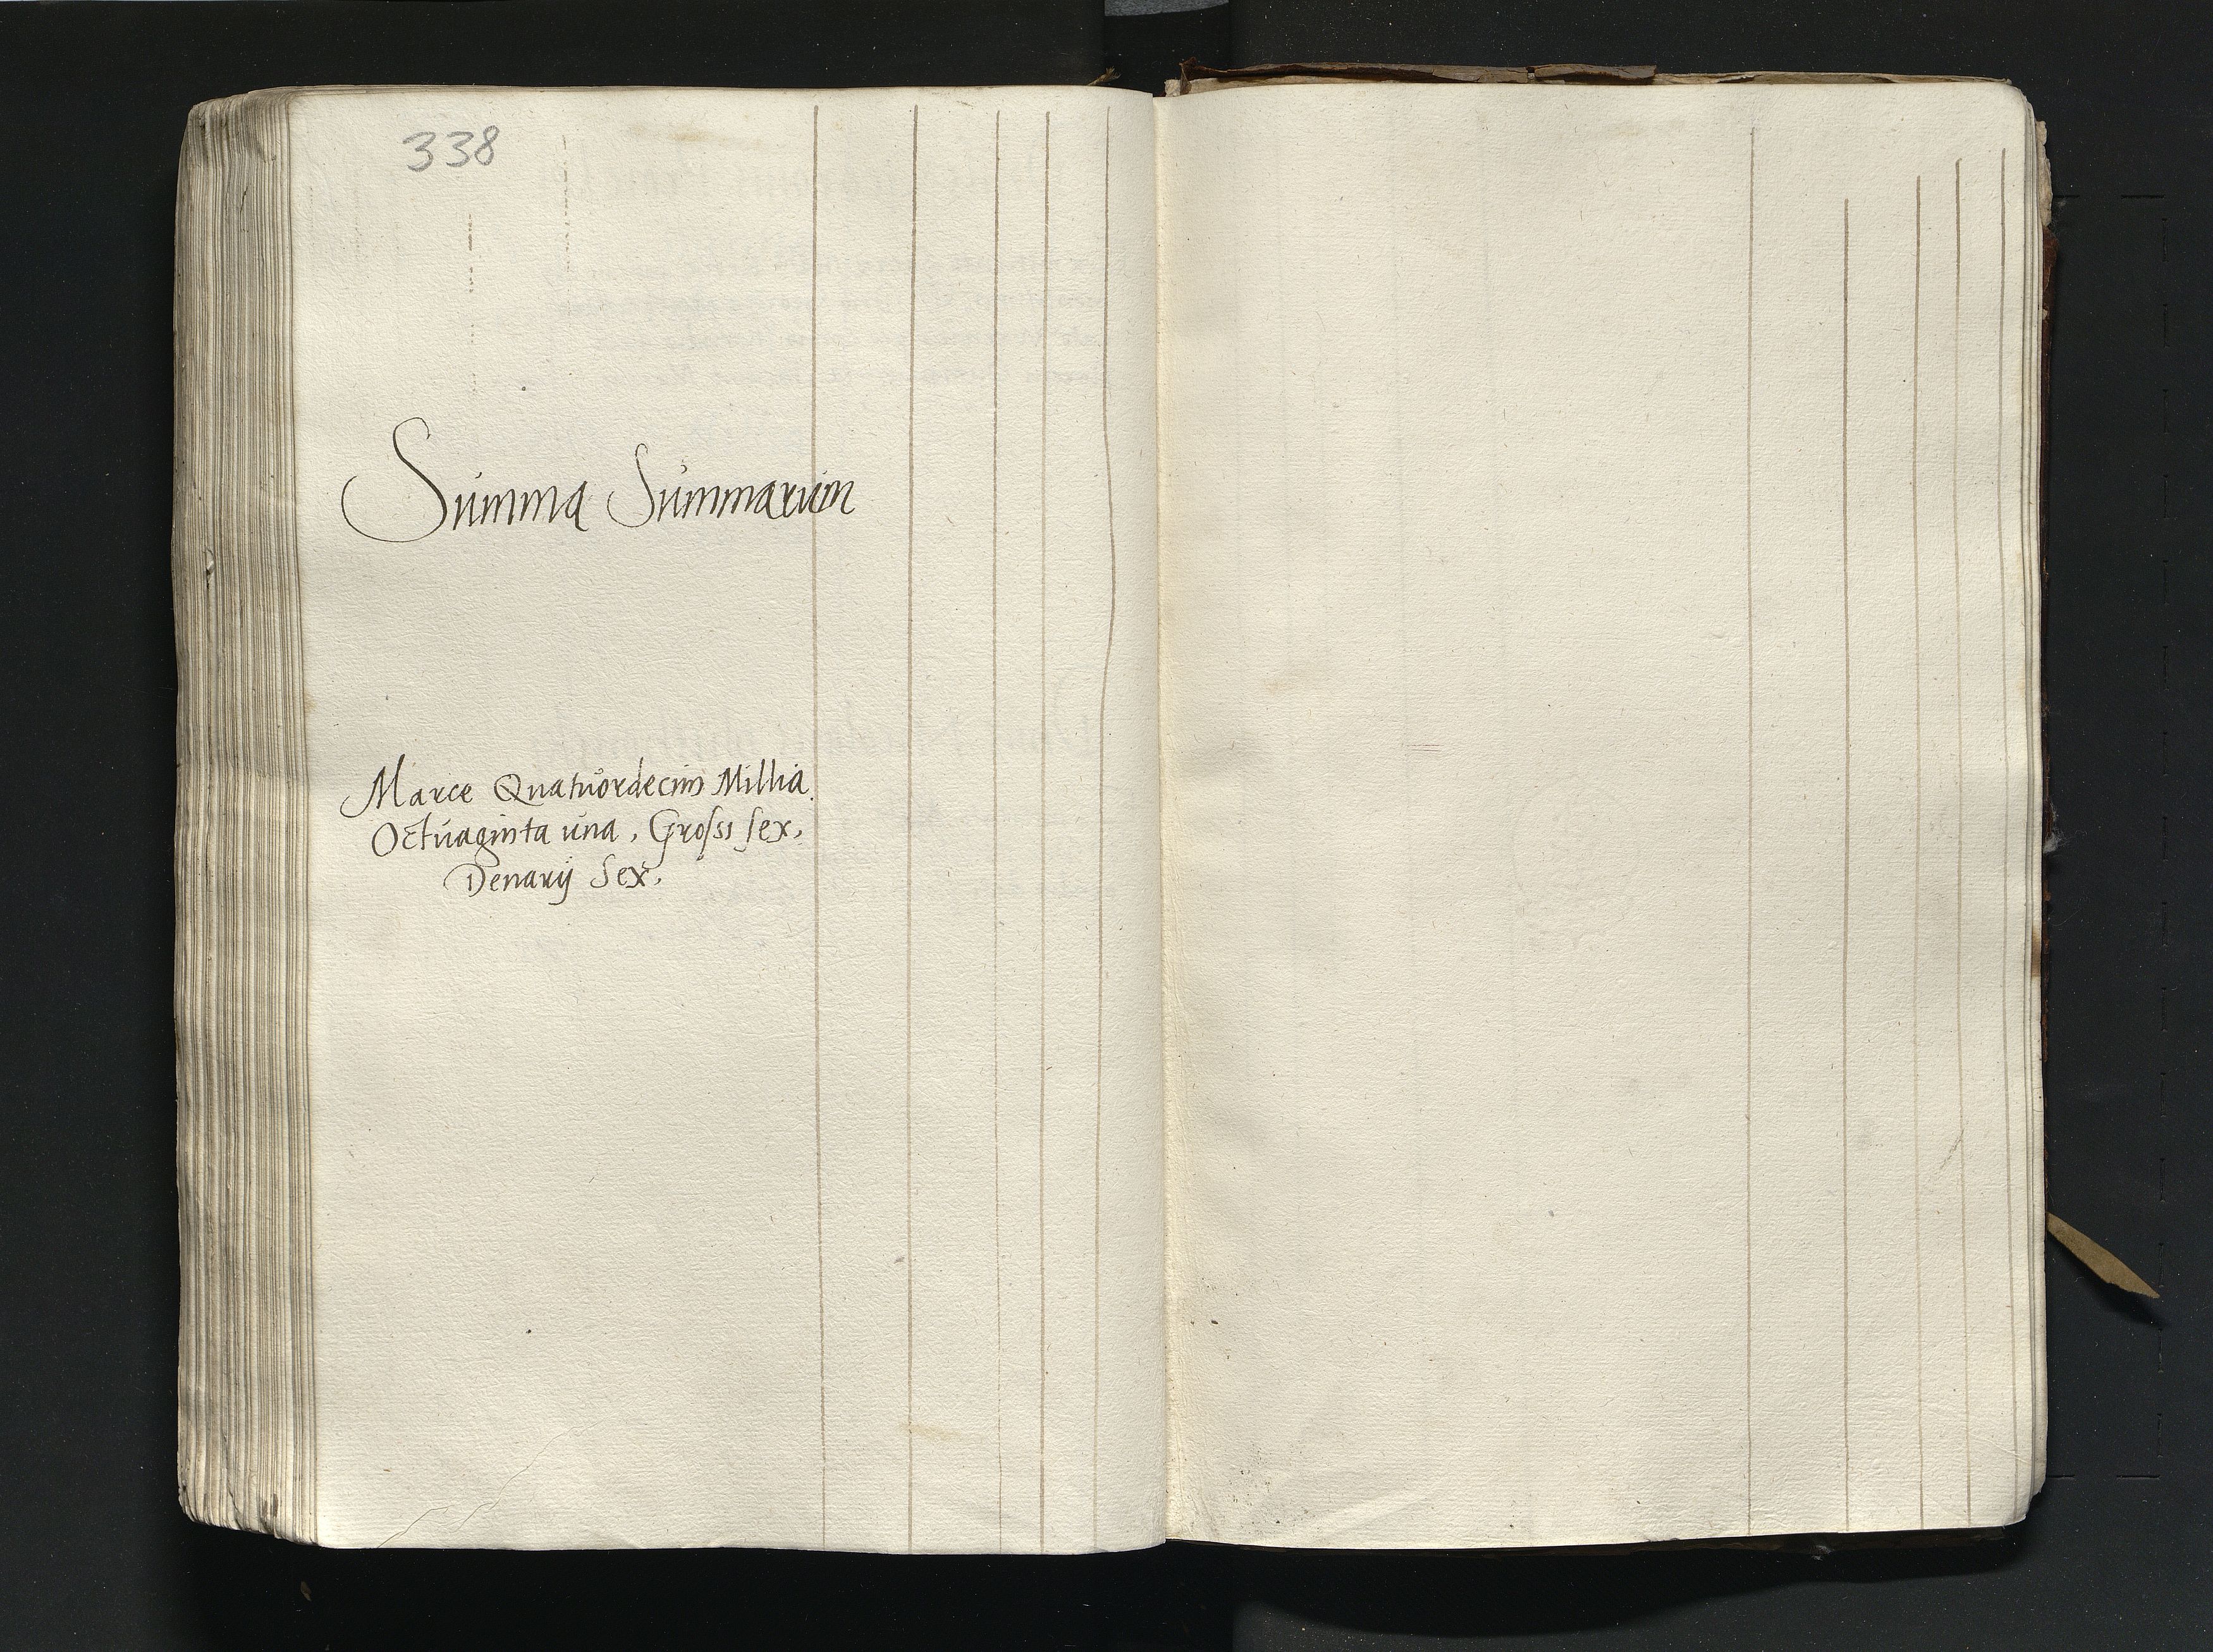 338
Summa Summarum
Marce Quatuordecim Millia
Octuaginta una, Grossi sex,
Denarij Sex.